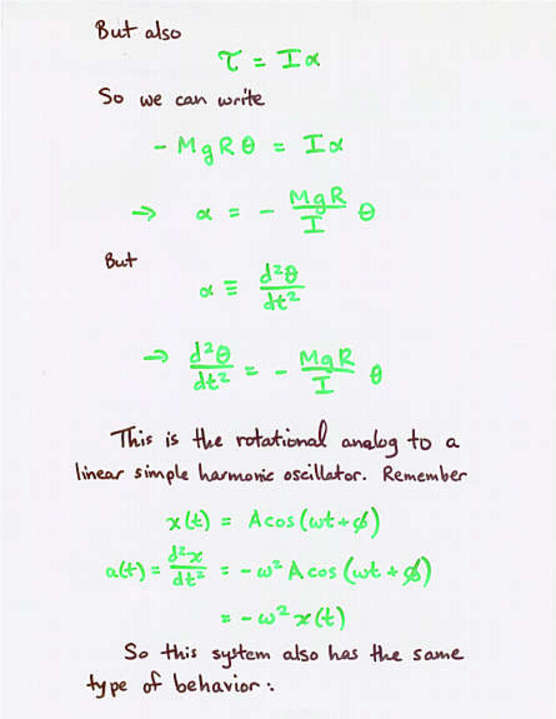 But also
τ = Iα
So we can write
- MgRθ = Iα
→ α = - MgR/I θ
But
α ≡ d²θ/dt²
→ d²θ/dt² = - MgR/I θ
This is the rotational analog to a
linear simple harmonic oscillator. Remember
x(t) = A cos(ωt + φ)
a(t) = d²x/dt² = - ω² A cos(ωt + φ)
= - ω² x(t)
So this system also has the same
type of behavior: